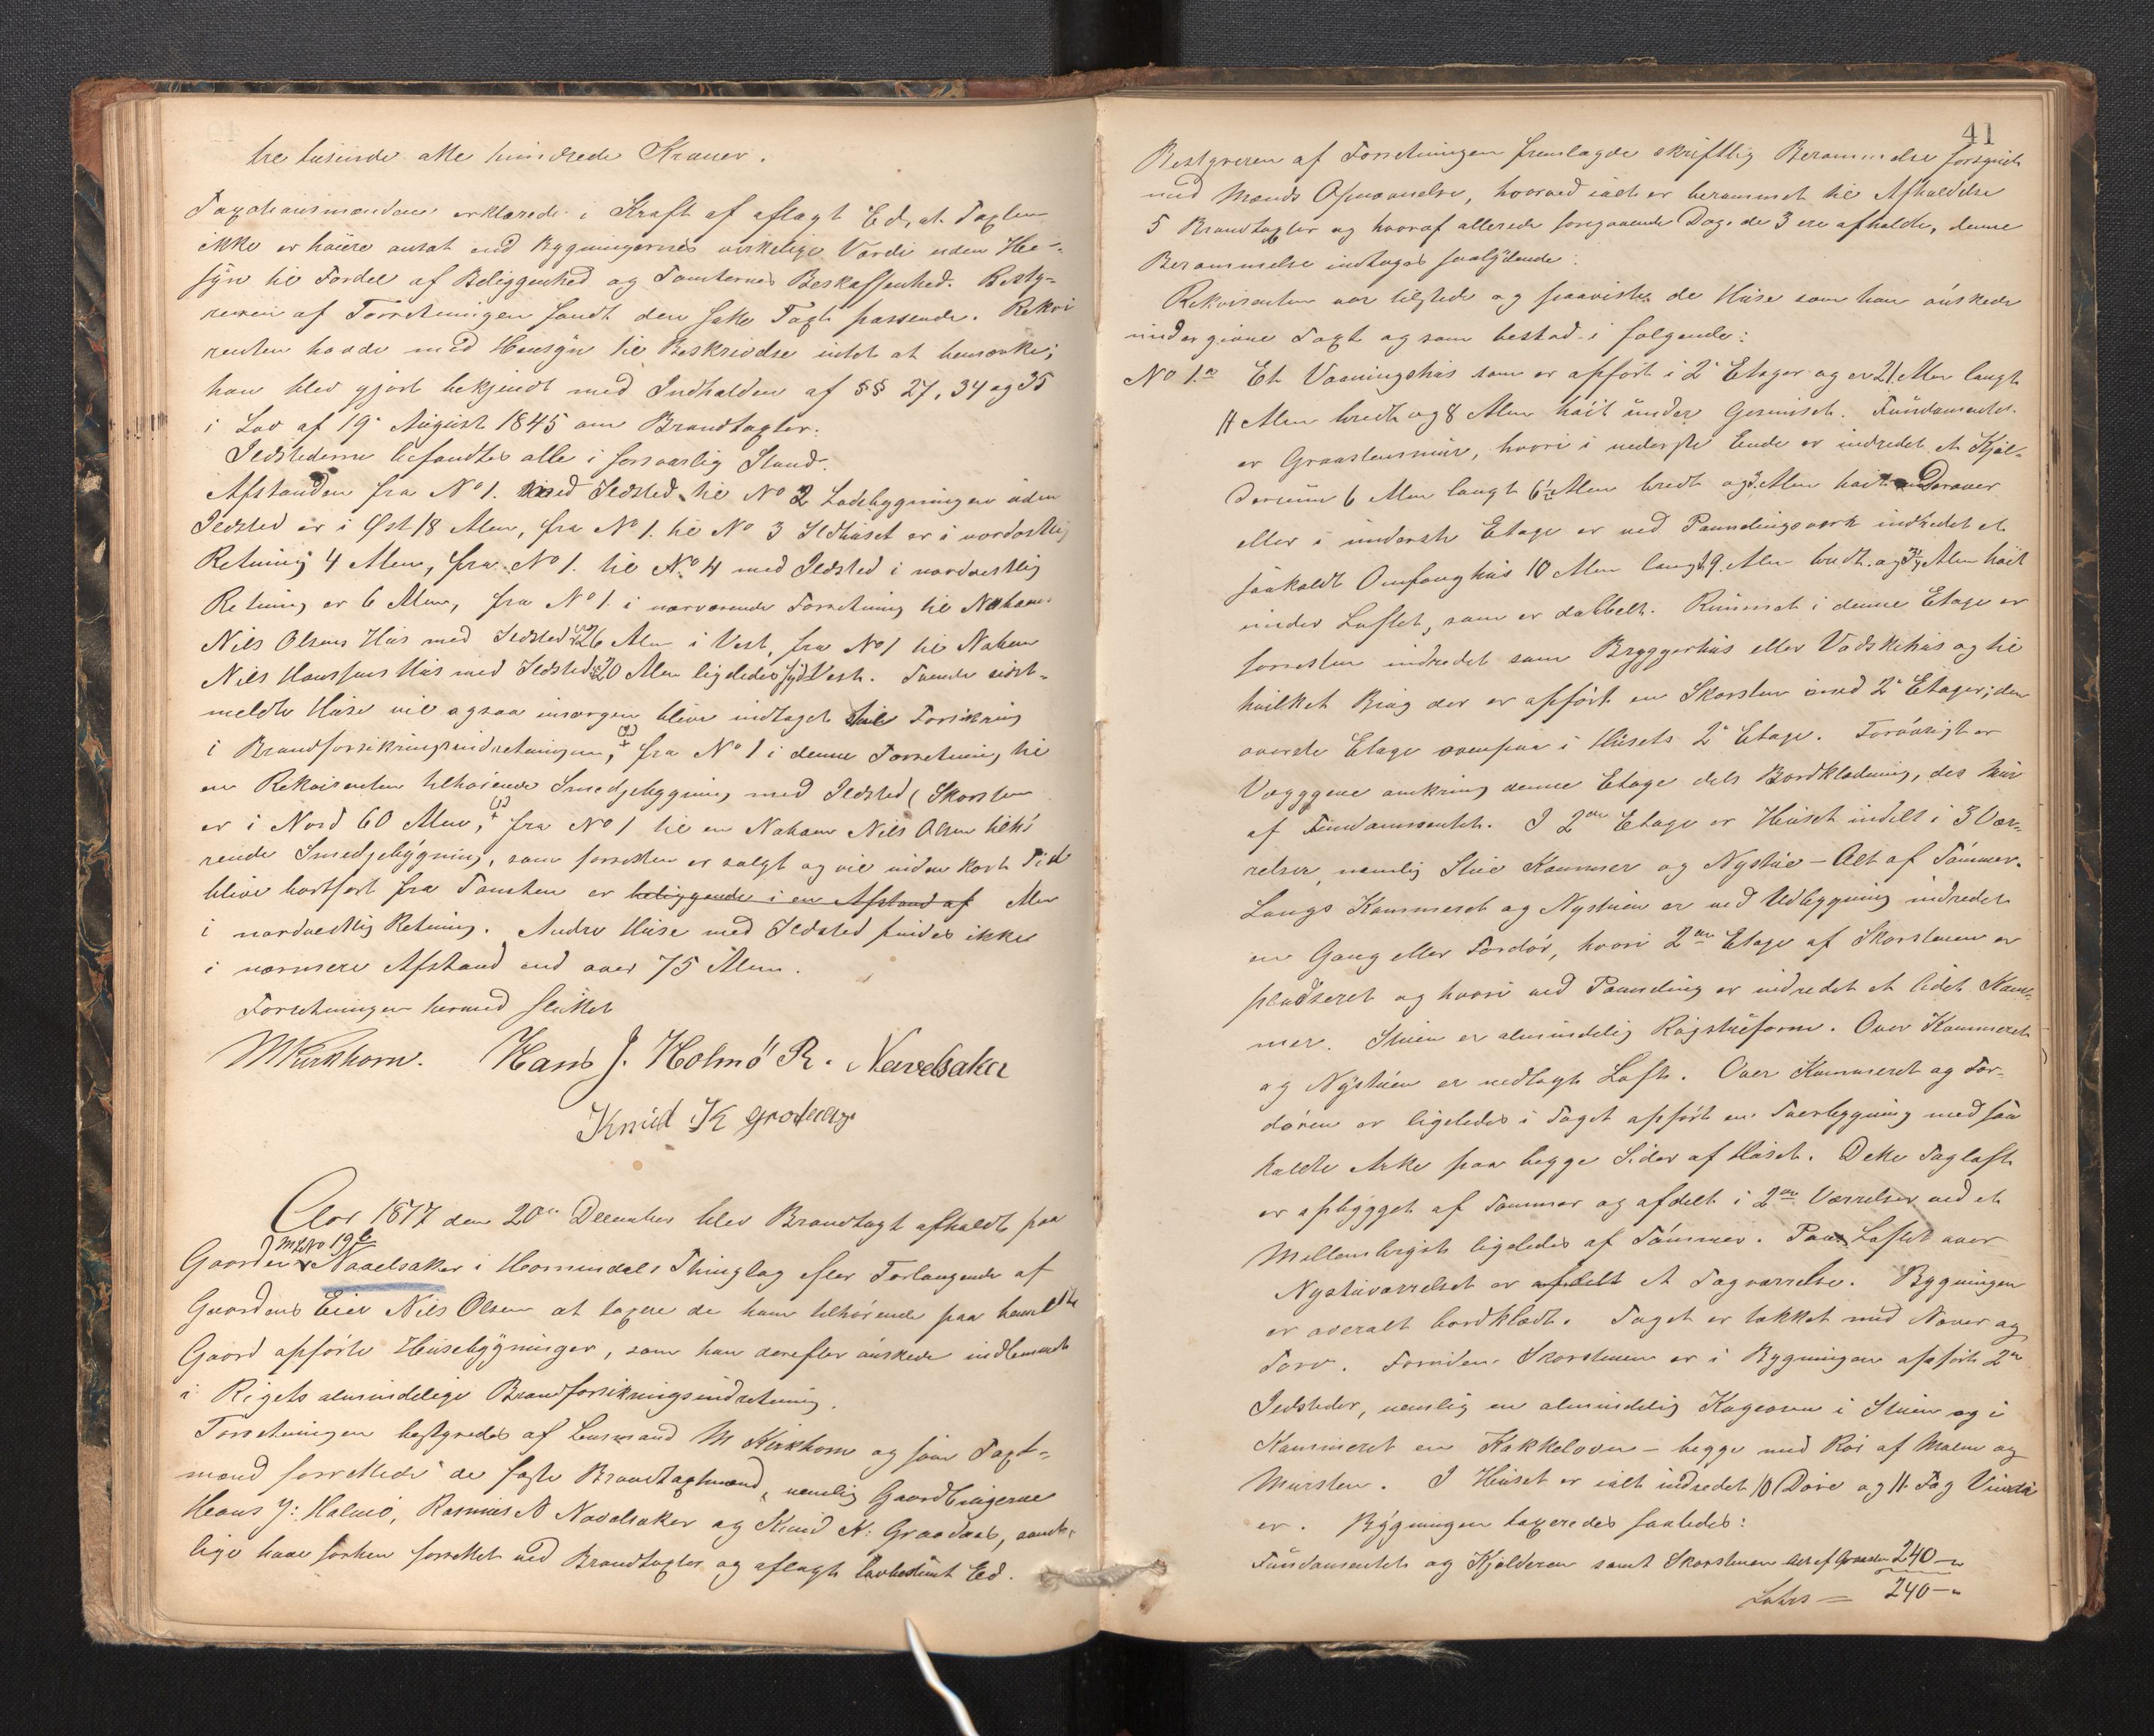 tre tusinde otte hundrede Kroner.
Taxationsmændene erklærede i Kraft af aflagt Ed, at Taxten
ikke er høiere ansat end Bygningernes virkelige Værdi uden Hen-
syn til Fordel af Beliggenhed og Tomternes Beskaffenhed. Besty-
reren af Forretningen fandt den satte Taxt passende. Rekvi
renten havde med Hensyn til Beskrivelse intet at bemærke;
han blev gjort bekjendt med Indholden af §§ 27, 34 og 35
i Lov af 19. August 1845 om Brandtaxter.
Ildstederne befandtes alle i forsvarlig Stand.
Afstanden fra No 1. med Ildsted til No 2 Ladebygningen uden
Ildsted er i Øst 18 Alen, fra No 1. til No 3 Ildhuset er i nordostlig
Retning 4 Alen, fra No 1. til No 4 med Ildsted i nordvestlig
Retning er 6 Alen, fra No 1. i nærværende Forretning til Naboen
Nils Olsens Hus med Ildsted 26 Alen i Vest, fra No 1 til Naboen
Nils Hanssens Hus med Ildsted 20 Alen ligeledes syd Vest. Tvende sidst-
meldte Huse vil ogsaa imorgen blive indtaget til Forsikring
i Brandforsikringsindretningen, (2) + fra No 1 i denne Forretning til
en Rekvirenten tilhørende Smedjebygning med Ildsted (Skorsten
er i Nord 60 Alen, (1) + fra No 1 til en Naboen Nils Olsen tilhø
rende Smedjebygning, som forresten er solgt og vil inden kort Tid
blive bortført fra Tomten er beliggende i en Afstand af Alen
i nordvestlig Retning. Andre Huse med Ildsted findes ikke
i nærmere Afstand end over 75 Alen.
Forretningen hermed sluttet
M Kirkhorn. Hans J. Holmö R. Navelsaker
Knud K Grodaas
Aar 1877 den 20de December blev Brandtaxt afholdt paa
Gaarden M L No 19 b Naaelsaker i Hornindals Thinglag efter Forlangende af
Gaardens Eier Nils Olsen at taxere de ham tilhørende paa bemeldte
Gaard opførte Husebygninger, som han derefter ønskede indlemmet
i Rigets almindelige Brandforsikringsindretning.
Forretningen bestyredes af Lensmand M Kirkhorn og som Taxt-
mænd forrettede de faste Brandtaxtmænd, nemlig Gaardbrugerne
Hans J: Holmö, Rasmus A Navelsaker og Knud K: Graadaas, samt-
lige have forhen forrettet ved Brandtaxter og aflagt lovbestemt Ed.
41
Bestyreren af Forretningen fremlagde skriftlig Berammelse forsynet
med Mænds Opnævnelse, hvorved ialt er berammet til Afholdelse
5 Brandtaxter og hvoraf allerede foregaaende Dage de 3 ere afholdte, denne
Berammelse indtages saalydende:
Rekvirenten var tilstede og paaviste de Huse som han ønskede
undergivne Taxt og som bestod i følgende:
No 1.a Et Vaaningshus som er opført i 2 Etager og er 21 Alen langt
11 Alen bredt og 8 Alen høit under Gesimset. Fundamentet
er Graastensmur, hvori i nederste Ende er indredet et Kjel-
derrum 6 Alen langt 6½ Alen bredt og Alen høit Derover
eller i underste Etage er ved Panelingsværk indredet et
saakaldt Omfanghus 10 Alen langt 9 Alen bredt og 3¼ Alen høit
under Loftet, som er dobbelt. Rummet i denne Etage er
forresten indredet som Bryggerhus eller Vadskehus og til
hvilket Brug der er opført en Skorsten med 2 Etager; den
øverste Etage ovenpaa i Husets 2 Etage. Forøvrigt er
Væggene omkring denne Etage dels Bordklædning, dels Mur
af Fundamentet. I 2den Etage er Huset indelt i 3 Vær-
relser, nemlig Stue Kammer og Nystue – Alt af Tømmer.
Langs Kammeret og Nystuen er ved Udbygning indredet
en Gang eller Fordør, hvori 2den Etage af Skorstenen er
pladseret og hvori ved Paneling er indredet et lidet Kam-
mer. Stuen er almindelig Røgstueform. Over Kammeret
og Nystuen er nedlagt Loft. Over Kammeret og For-
døren er ligeledes i Taget opført en Tverbygning med saa
kaldte Arke paa begge Sider af Huset. Dette Tagloft
er opbygget af Tømmer og afdelt i 2de Værrelser ved et
Mellembrygst ligeledes af Tømmer. Paa Loftet over
Nystuværrelset er afdelt et Tagværrelse. Bygningen
er overalt bordklædt. Taget er tækket med Næver og
Torv. Foruden Skorstenen er i Bygningen opført 2de
Ildsteder, nemlig en almindelig Kogeovn i Stuen og i
Kammeret en Kakkelovn – begge med Rør af Malm og
Mursten. I Huset er ialt indredet 10 Døre og 11 Fag Vindu
er. Bygningen taxeredes saaledes:
Fundamentet og Kjelderen samt Skorstenen Alt af Graasten 240 – "
Lates = 240 – "